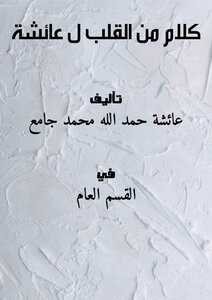 كلام من القلب ل عائشة
تأليف
عائشة حمد الله محمد جامع
في
القسم العام